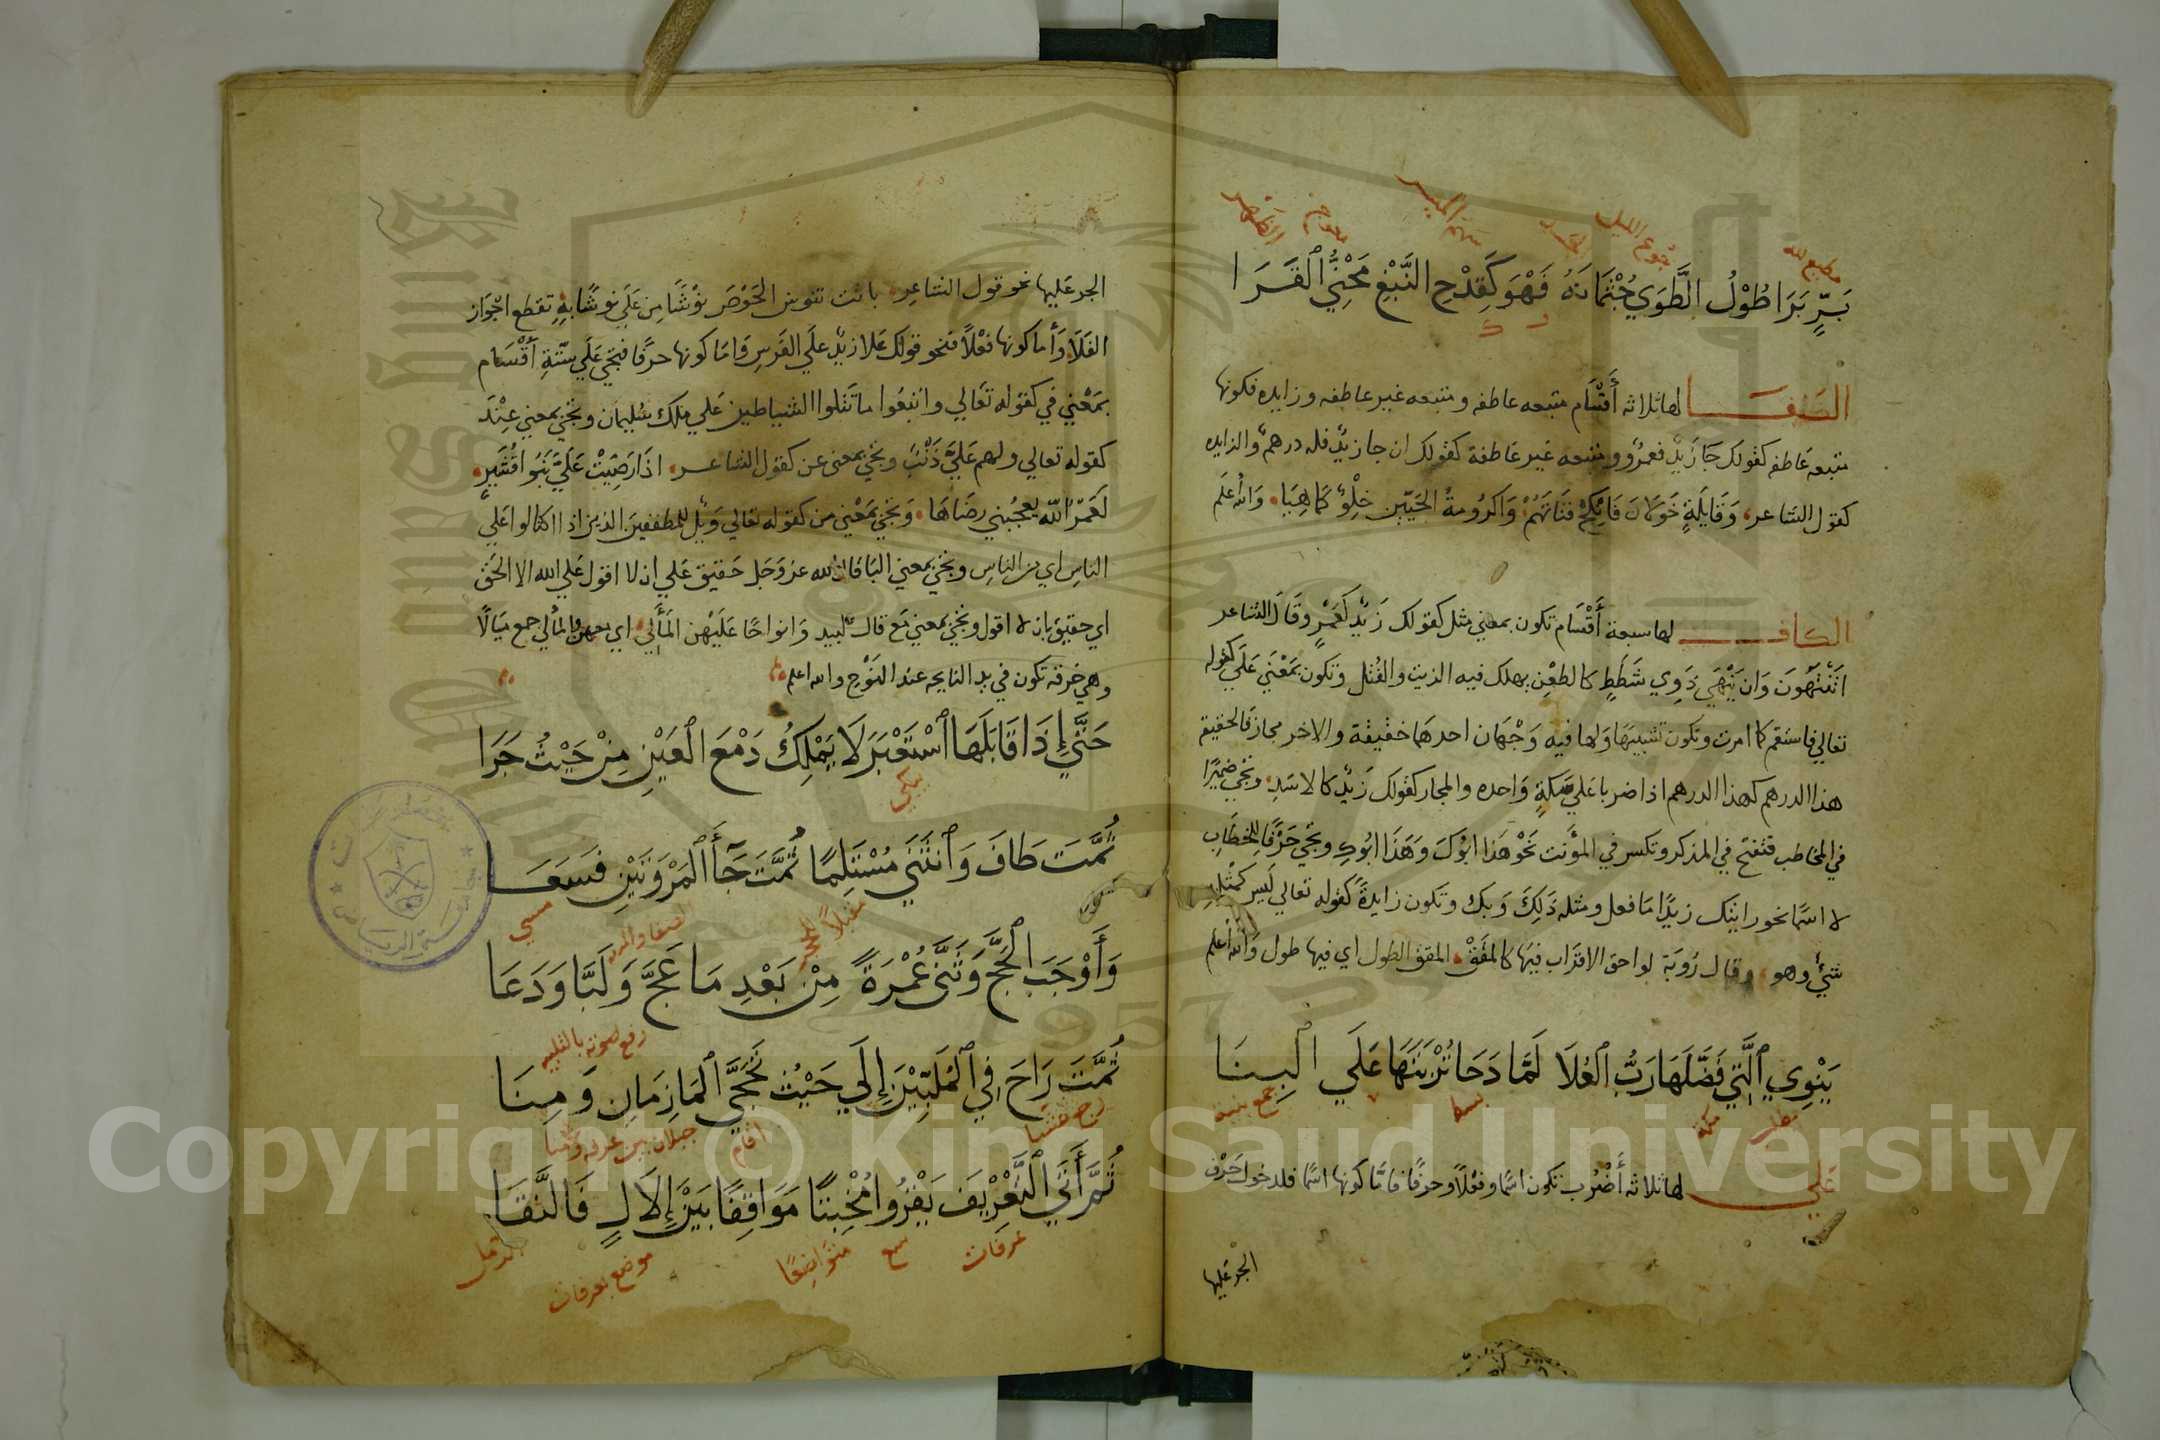 مطيع لله جوع الليل جسمه سهم الميسر معوج الظهر
بَرٍّ بَرَا طُوْلُ الطَّوَي جُثْمَانَهُ فَهْوَ كَقِدْحِ النَّبْعِ مَحْنِيُّ الْقَرَا
الفا لها ثلاثه أَقْسَام متبعه عاطفه ومتبعه غير عاطفه وزايده فكونها
متبعه عاطفه كقولك جَا زَيْدٌ فعمرٌو ومتبعه غير عاطفة كقولك ان جا زيدٌ فله درهمٌ والزايده
كقول الشاعر وَقَايِلَةٍ خَوْلَانَ فَانْكِحْ فَتَاتَهُمْ وَاكْرُومَةُ الحَيَّيْنِ خِلْوٌ كَمَا هِيَا والله أعلم
الكاف لها سبعة أَقْسَام تكون بمعني مثل كقولك زَيْدٌ كَعَمْرٍ وقَالَ الشاعر
اتَنْتَهُونَ وَان يَنْهَي ذَوِي شَطَطٍ كالطعْنِ يهلك فيه الزيت والفُتُل وتكون بمَعْنَي عَلَي كقوله
تعالي فاستقم كما امرت وتكون تشبيها ولها فيه وَجْهَان احدهما حقيقة والاخر مجاز فالحقيقه
هذا الدرهم كهذا الدرهم اذا ضربا علي سكةٍ واحده والمجاز كقولك زَيْدٌ كالاسَدِ وتجي ضميرًا
في المخاطب فتفتح في المذكر وتكسر في المؤنث نحْو هَذا ابُوْكَ وَهَذَا ابُوكِ وتجي حَرْفًا للخطَابِ
لا اسمًا نحو رايتك زيدًا ما فعل ومثله ذَلِكَ وبك وتكون زايدةً كقوله تعالي لَيس كمثْلِهِ
شيٌ وهو وقال رُوبَة لواحق الاقرَاب فيهَا كالمقَقْ المقق الطول اي فيها طول والله أعلم
يَنْوِي الَّتِي فَضَّلَهَا رَبُّ الْعُلَا لَمَّا دَحَا تُرْبَتَهَا عَلَي الْبِنَا
يطلب مكة بسط جمع بنيه
علي لها ثلاثه أَضْرُب تكون اسمًا وفعْلًا وحرفًا فامَّا كونها اسمًا فلدخول حَرْف
الجر عليها
الجر عَليها نحو قول الشاعر باتت تنوش الحَوْضَ نوْشًا مِن عَلَي نوشًا بِهِ تقطع اجْوَاز
الفَلَا وَأما كونها فعْلاً فنحو قولك عَلا زيدٌ علَي الفَرسِ وَامَا كونها حرفًا فتجي عَلَي ستّةِ أقْسَام
بمَعْني في كقوله تَعَالي واتبعُوا ما تَتْلوا الشياطين عَلي مُلك سُليمان وتجي بمعني عِنْدَ
كقوله تعالي ولهم عَليَّ ذَنْبٌ وتجي بمعنى عن كقول الشاعر اذَا رَضِيَتْ عَلَيَّ بَنُوا قُشَيرٍ
لَعَمْرُ اللّه يعجبُني رضَاهَا وَتجي بمَعْني من كقوله تعالي ويْل للمطففين الذين اذا اكتالوا عَلي
الناس اي من الناسِ وتجي بمعني البَا قال الله عز وجل حَقيق عَلي ان لا اقول عَلي الله الا الحَقَّ
اي حقيق بان لا اقول وتجي بمعني مَع قال لبيد وَانواحًا عَلَيْهن المَأَلي اي معهن والمألي جمع ميَالًا
وهي خرقه تكون في يد النايحه عند النَوْحِ والله اعلم
حَتَّي إِذَا قَابَلَهَا اسْتَعْبَرَ لَا يَمْلِكُ دَمْعَ الْعَيْنِ مِنْ حَيْثُ جَرَا
يبكي
ثُمَّتَ طَافَ وَانْثَنَي مُسْتَلِمًا ثُمَّتَ جَآ الْمَرْوَتَيْنِ فَسَعَا
مقبلًا للحجر الصفا والمروه مسي
وَأَوْجَبَ الْحَجَّ وَثَنَّى عُمْرَةً مِنْ بَعْدِ مَا عَجَّ وَلَبَّا وَدَعَا
رفع صوته بالتلبيه
ثُمَّتَ رَاحَ فِي الْمُلَبِّيْنَ إِلَي حَيْثُ تَحَجَّي الْمَازِمَانِ وَمِنَا
راح عشيا اقام جبلان بين عرفه ومنا
ثُمَّ أَتَي التَّعْرِيْفَ يَقْرُوا مُخْبِتًا مَوَاقِفًا بَيْنَ إِلَالٍ فَالنَّقَا
عرفات متوَاضِعًا موضع بعرفات الرمل
Copyright © King Saud University
1957